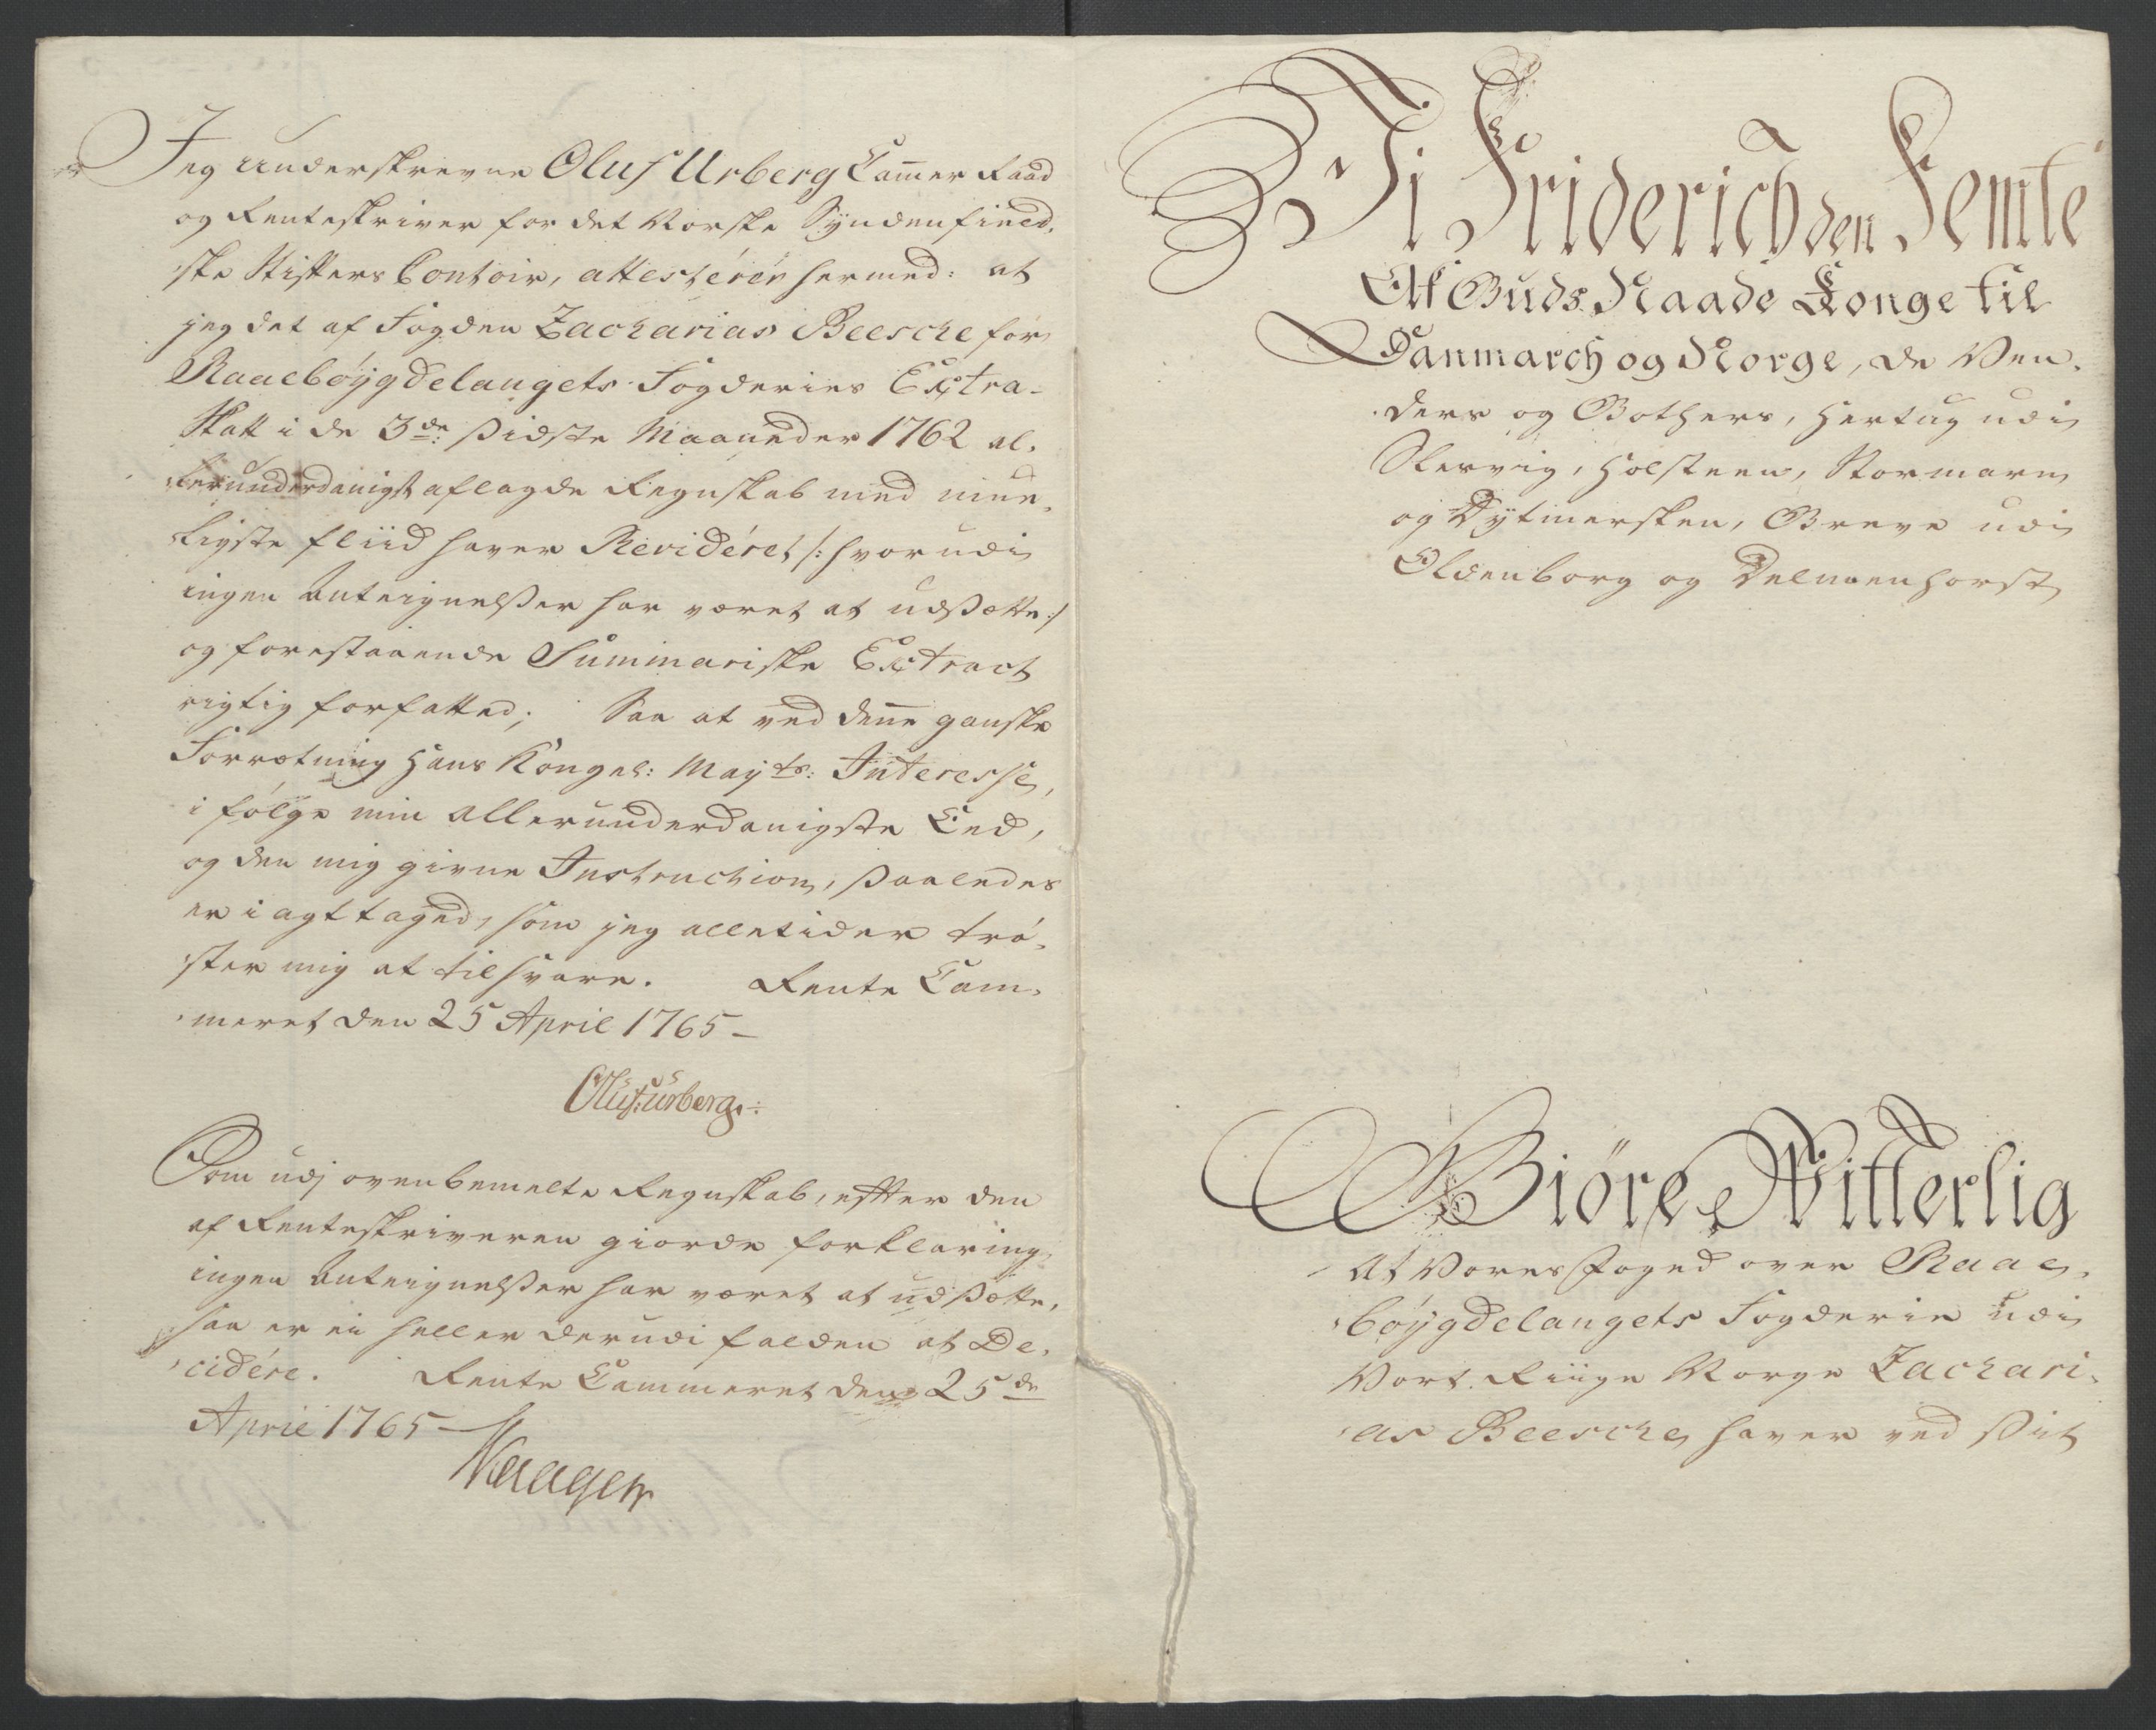 Jeg Underskrevne Oluf Urberg Cam̄er Raad
og Renteskriver for det Norske Syndenfield,
ske Stifters Contoir, attestérer hermed: at
jeg det af Fogden Zacharias Beesche for
Raaebøygdelaugets Fogderies Extra-
Skatt i de 3de: sidste Maaneder 1762 al,
lerunderdanigst aflagde Regnskab med mue,
ligste Fliid haver Revidéret /: hvorudi
ingen Antegnelser har været at udsætte :/
og forestaaende Summariske Extract
rigtig forfatted; Saa at ved denne ganske
Forretning Hans Kongel: Mayts: Interesse,
i følge min allerunderdanigste Eed,
og den mig givne Instruction, saaledes
er i agt taged, som jeg alletider trø,
ster mig at tilsvare. Rente Cam,
meret den 25 April 1765 –
Oluf: urberg.
Som udj ovenbemelte Regnskab, efter den
af Renteskriveren giorde forklaring,
ingen Antegnelser har været at udsætte,
saa er ei heller derudi falden at De,
cidére. Rente Cammeret den 25de
April 1765 –
Vi Friderich den Femte
Af Guds Naade Konge til
Danmarch og Norge, de Ven,
ders og Gothers, Hertug udi
Slesvig, Holsteen, Stormarn
og Dytmersken, Greve udi
Oldenborg og Delmenhorst
Giöre Witterlig
At Vores Foged over Raae,
bøygdelaugets Fogderie udi
Vort Riige Norge Zachari,
as Beesche haver ved sit